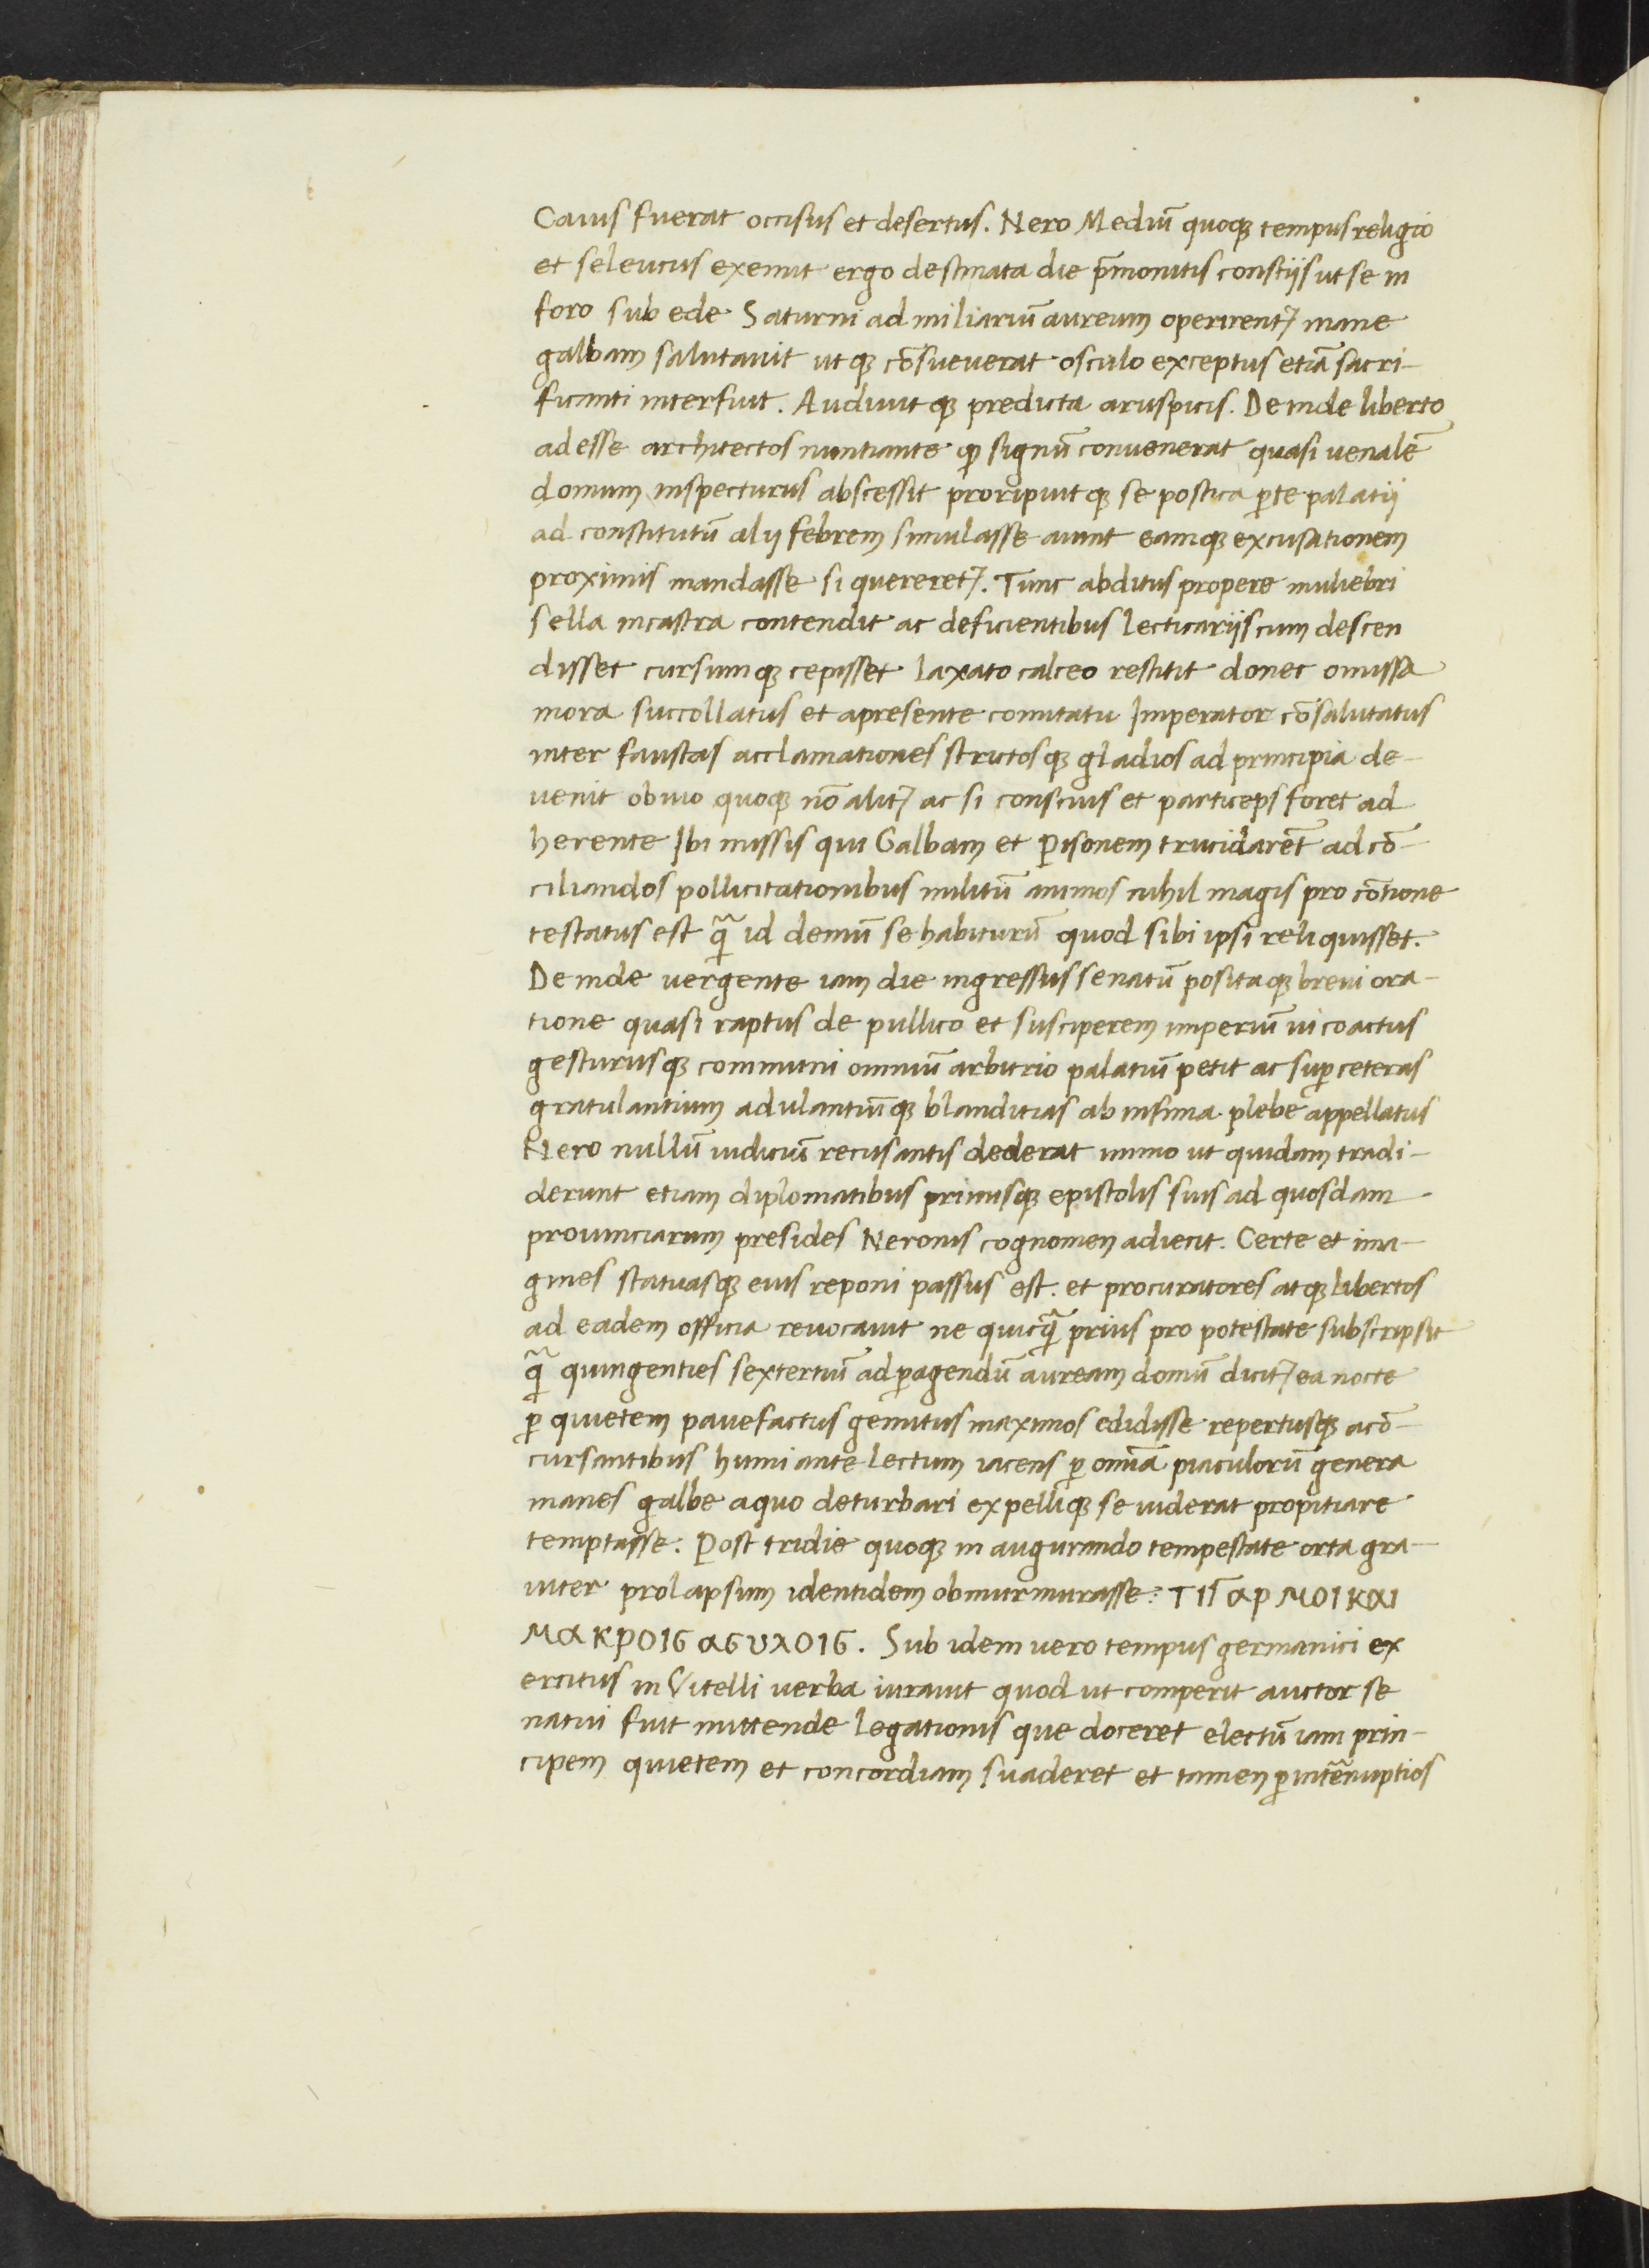 Caius fuerat occisus et desertus. Nero Mediū quoqꝫ tempus religio
et seleucus exemit ergo destinata die p̄monitis consciis ut se in
foro sub ede Saturni ad miliariū aureum operirentꝛ mane
galbam salutauit ut qꝫ cōsueuerat osculo exceptus etiā sacri-
ficanti interfuit. Audiuit qꝫ predicta aruspicis. Deinde liberto
adesse architectos nuntiante ꝙ signū conuenerat quasi uenalē
domum inspecturus abscessit proripuit qꝫ se postica ꝑte palatij
ad constitutū alij febrem simulasse aiunt eamqꝫ excusationem
proximis mandasse si quereretꝛ. Tunc abditus propere muliebri
sella in castra contendit ac deficientibus lecticariis cum descen
disset cursumqꝫ cepisset laxato calceo restitit donec omissa
mora succollatus et apresente comitatu Imperator cōsalutatus
inter faustas acclamationes strictosqꝫ gladios ad principia de-
uenit obuio quoqꝫ nō alitꝛ ac si conscius et particeps foret ad
herente Ibi missis qui Galbam et Pisonem trucidarēt ad cō-
ciliandos pollicitationibus militū animos nihil magis pro cōtione
testatus est q̄ id demū se habiturū quod sibi ipsi reliquisset.
Deinde uergente iam die ingressus senatū positaqꝫ breui ora-
tione quasi raptus de pullico et susciperem imperiū ui coactus
gesturusqꝫ communi omniū arbitrio palatiū petit ac suꝑ ceteras
gratulantium adulantiūqꝫ blanditias ab infima plebe appellatus
Nero nullū iudiciū recusantis dederat immo ut quidam tradi-
derunt etiam diplomatibus primisqꝫ epistolis suis ad quosdam
prouinciarum presides Neronis cognomen adiecit. Certe et ima-
gines statuasqꝫ eius reponi passus est. et procuratores atqꝫ libertos
ad eadem officia reuocauit ne quicq̄ prius pro potestate subscripsit
q̄ quingenties sextertiū ad ꝑagendū auream domū dicitꝛ ea nocte
ꝑ quietem pauefactus gemitus maximos edidisse repertusqꝫ acō-
cursantibus humi ante lectum iacens ꝑ omīa piaculorū genera
manes galbe aquo deturbari expelliqꝫ se uiderat propitiare
temptasse. Post tridie quoqꝫ in augurando tempestate orta gra-
uiter prolapsum identidem obmurmurasse: ΤΙΓαρ ΜΟΙ Και
ΜαΚΡΟΙϹ αϹυλΟΙϹ. Sub idem uero tempus germanici ex
ercitus in Vitelli uerba iurauit quod ut comperit auctor se
natui fuit mittende legationis que doceret electū iam prin-
cipem quietem et concordiam suaderet et tamen ꝑ intērnuptios